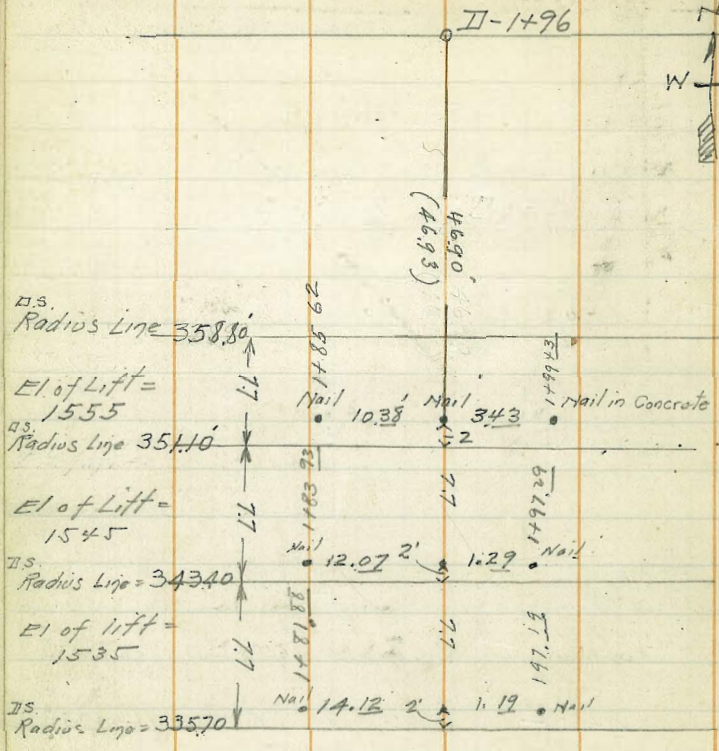 II-1+96
N
W
46.90'
(46.93)
D.S.
Radius Line 358.80'
1+85 62
1+99 43
7.7
El. of Lift =
1555
Nail 10.38' Nail 3.43 Nail in Concrete
D.S.
Radius Line 351.10'
2
1+83 93
7.7
7.7
1+97.29
El of Lift =
1545
Nail 12.07 2' 1.29 Nail
D.S.
Radius Line = 343.40
1+81 88
7.7
7.7
197.19
El of lift =
1535
Nail 14.12 2' 1.19 Nail
D.S.
Radius Line = 335.70